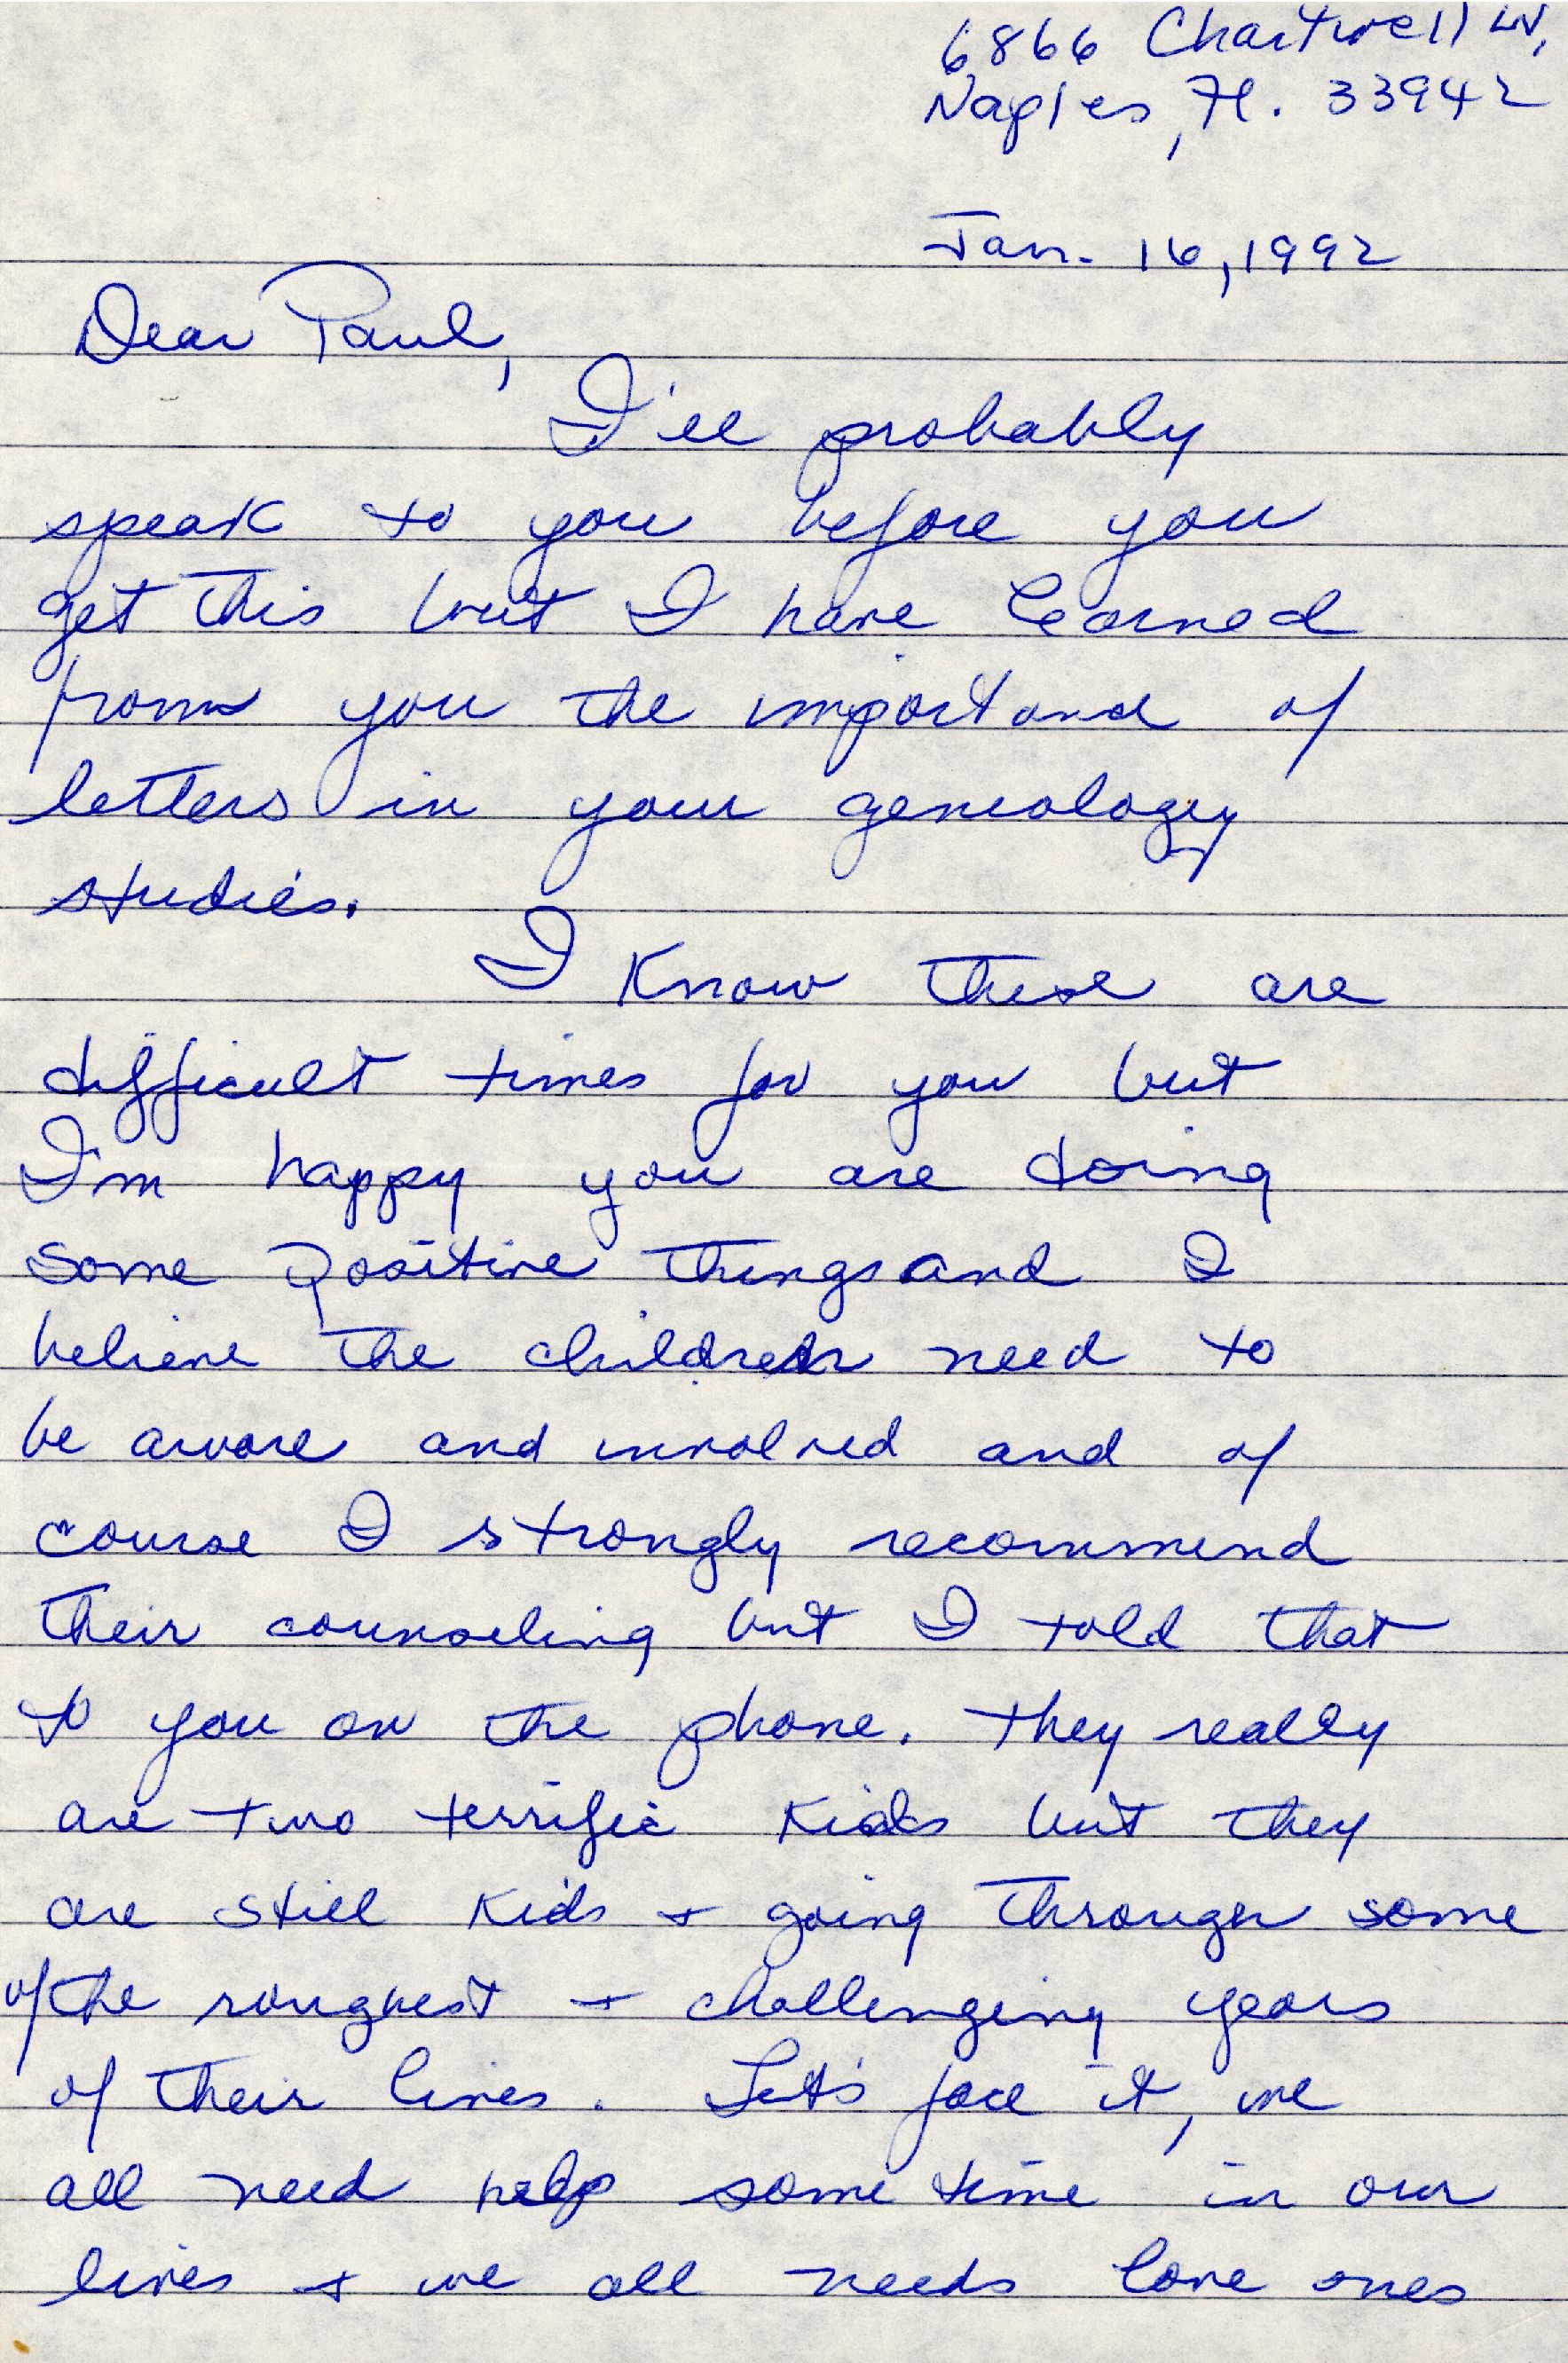 6866 Chartwell LN,
Naples, Fl. 33942
Jan. 16, 1992
Dear Paul,
I'll probably
speak to you before you
get this but I have learned
from you the importand of
letters in your geneology
studies.
I know these are
difficult times for you but
I'm happy you are doing
some positive things and I
believe the children need to
be aware and involved and of
course I strongly recommend
their counseling but I told that
to you on the phone. They really
are two terrific kids but they
are still kids + going through some
of the roughest + challenging years
of their lives. Let's face it, we
all need help some time in our
lives + we all needs love ones